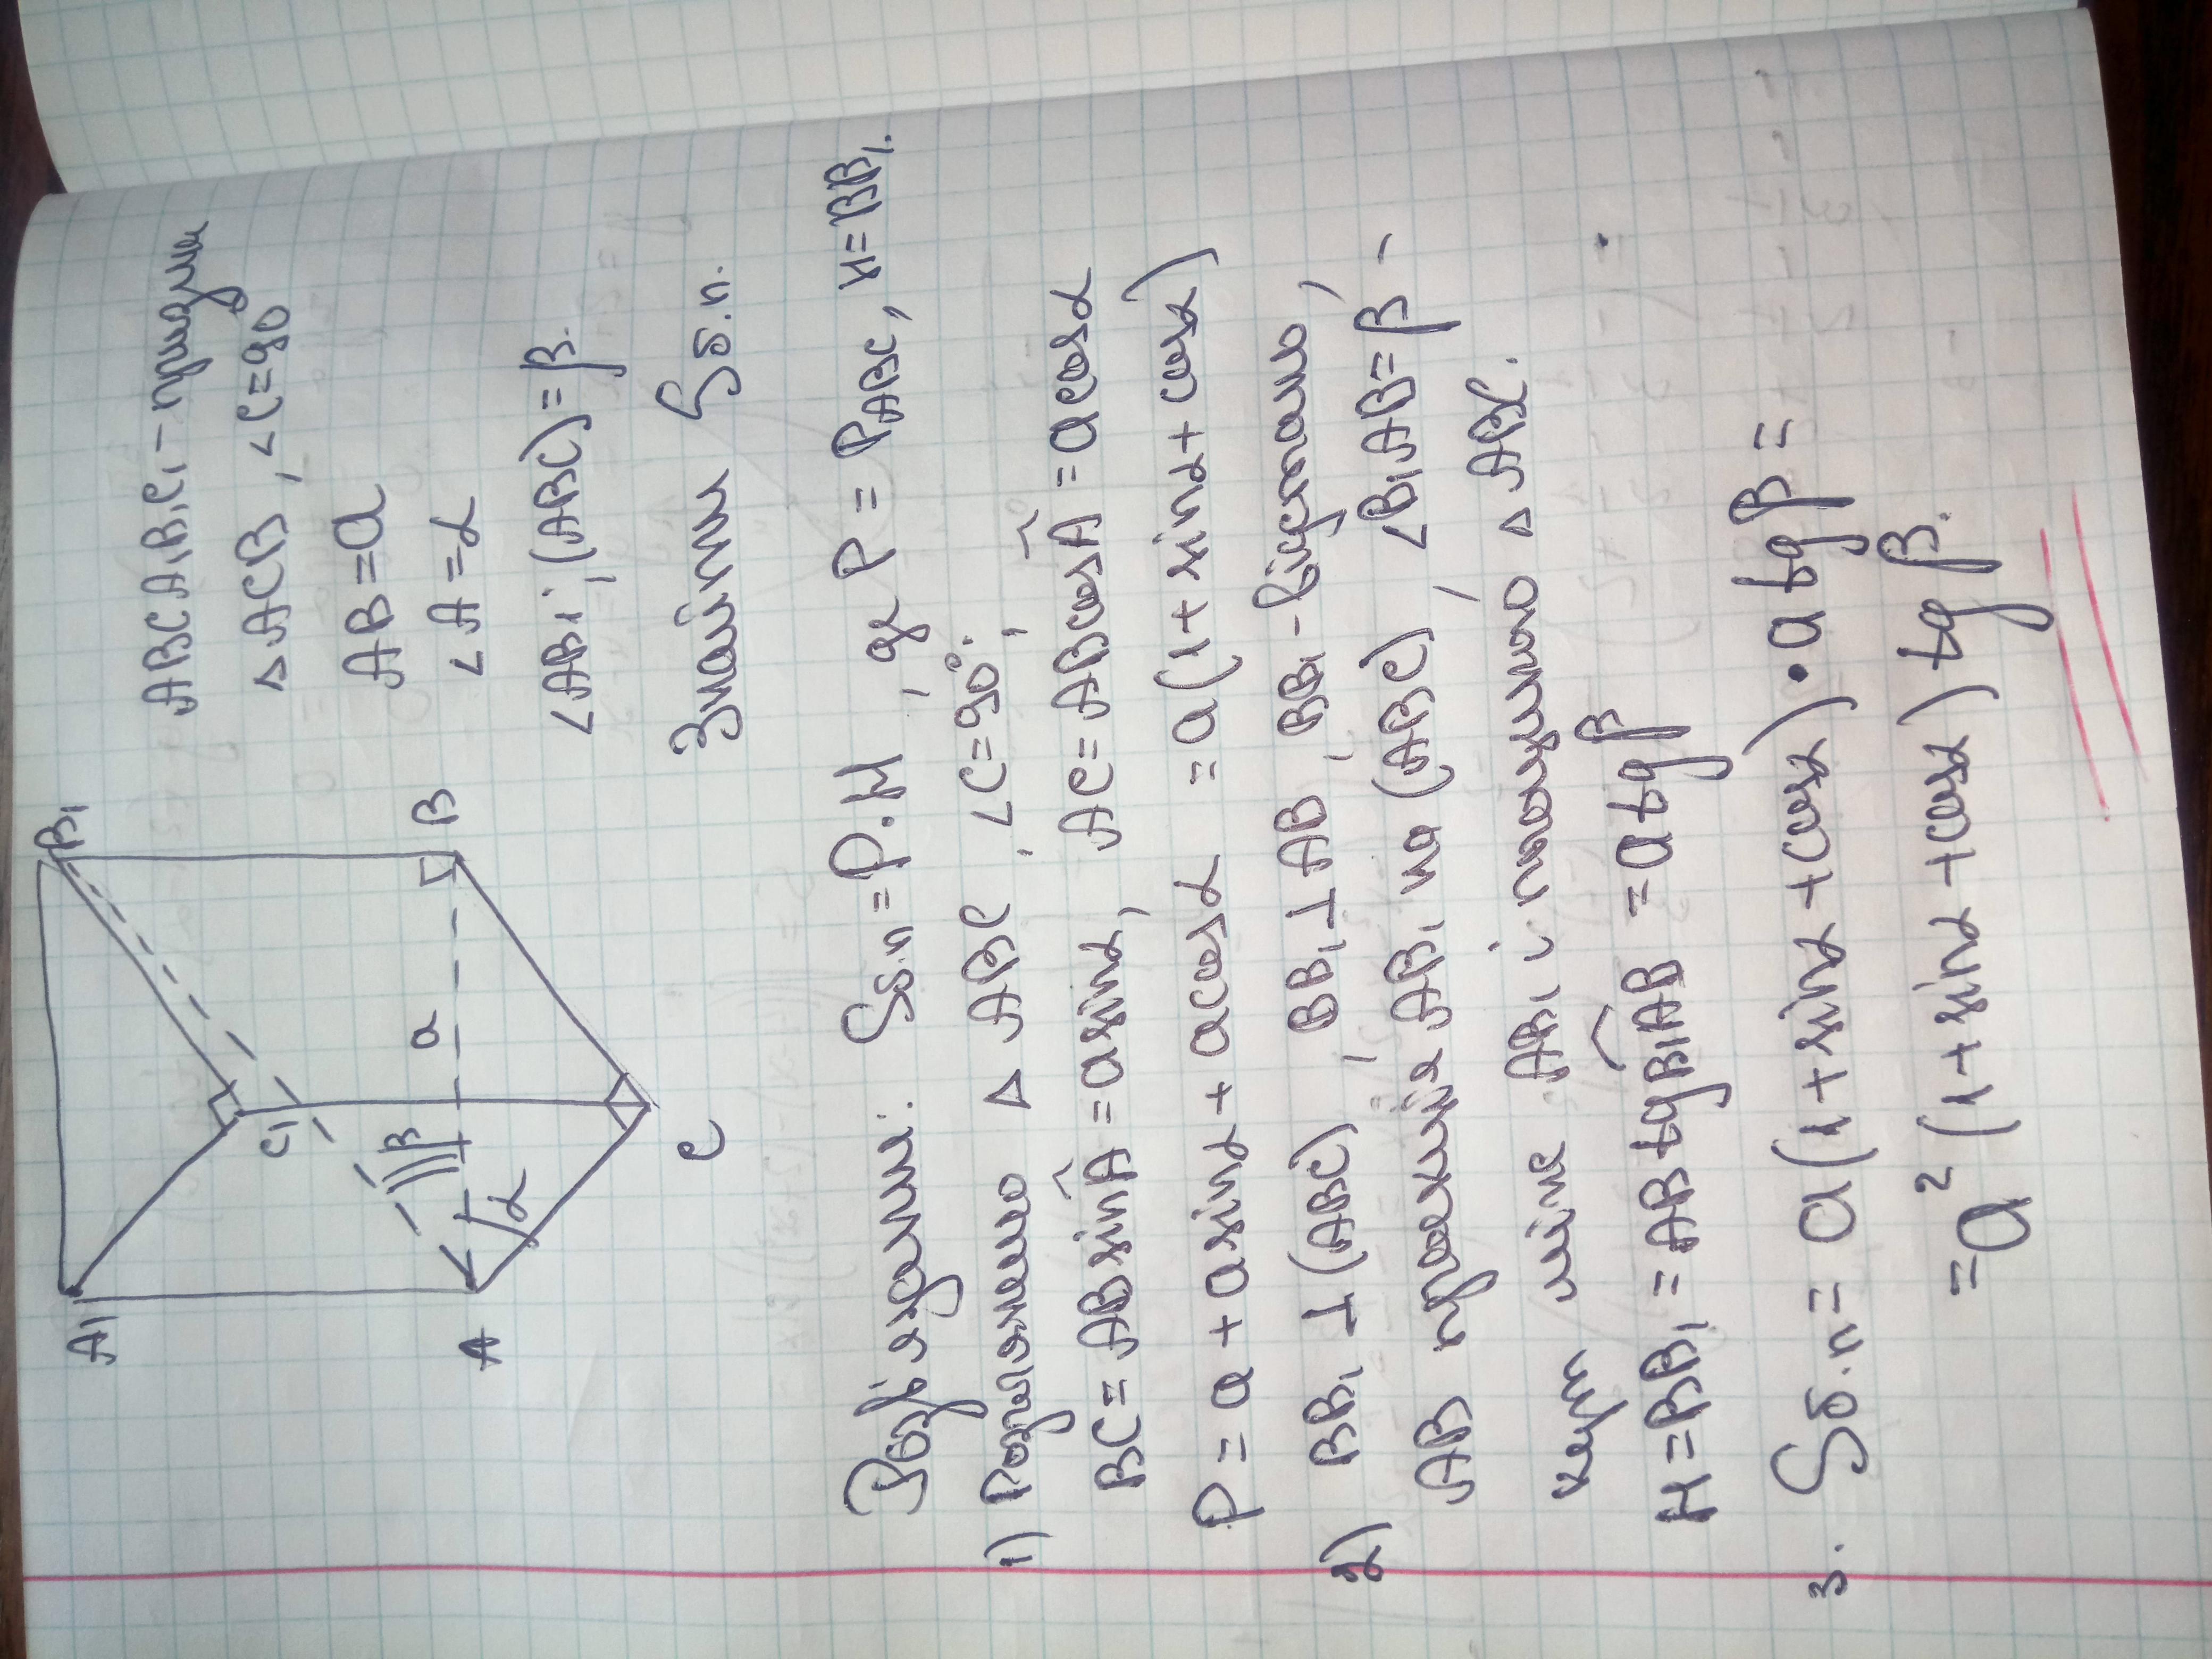 A1
B1
C1
β
a
α
A
B
C
ABCA1B1C1 – призма
△ACB, ∠C=90
AB=a
∠A=α
∠AB1; (ABC)=β.
Знайти Sб.п.
Розв'язання: Sб.п=P·H, де P = PABC, H=BB1.
1) Розглянемо △ABC, ∠C=90°;
BC=ABsinA=asinα, AC=ABcosA=acosα
P=a+asinα+acosα =a(1+sinα+cosα)
2) BB1⊥(ABC), BB1⊥AB, BB1-висота,
AB проекція AB1 на (ABC), ∠B1AB=β –
кут між AB1 і площиною △ABC.
H=BB1=ABtgB1AB=atgβ
3. Sб.п=a(1+sinα+cosα)·atgβ=
=a²(1+sinα+cosα)tgβ.